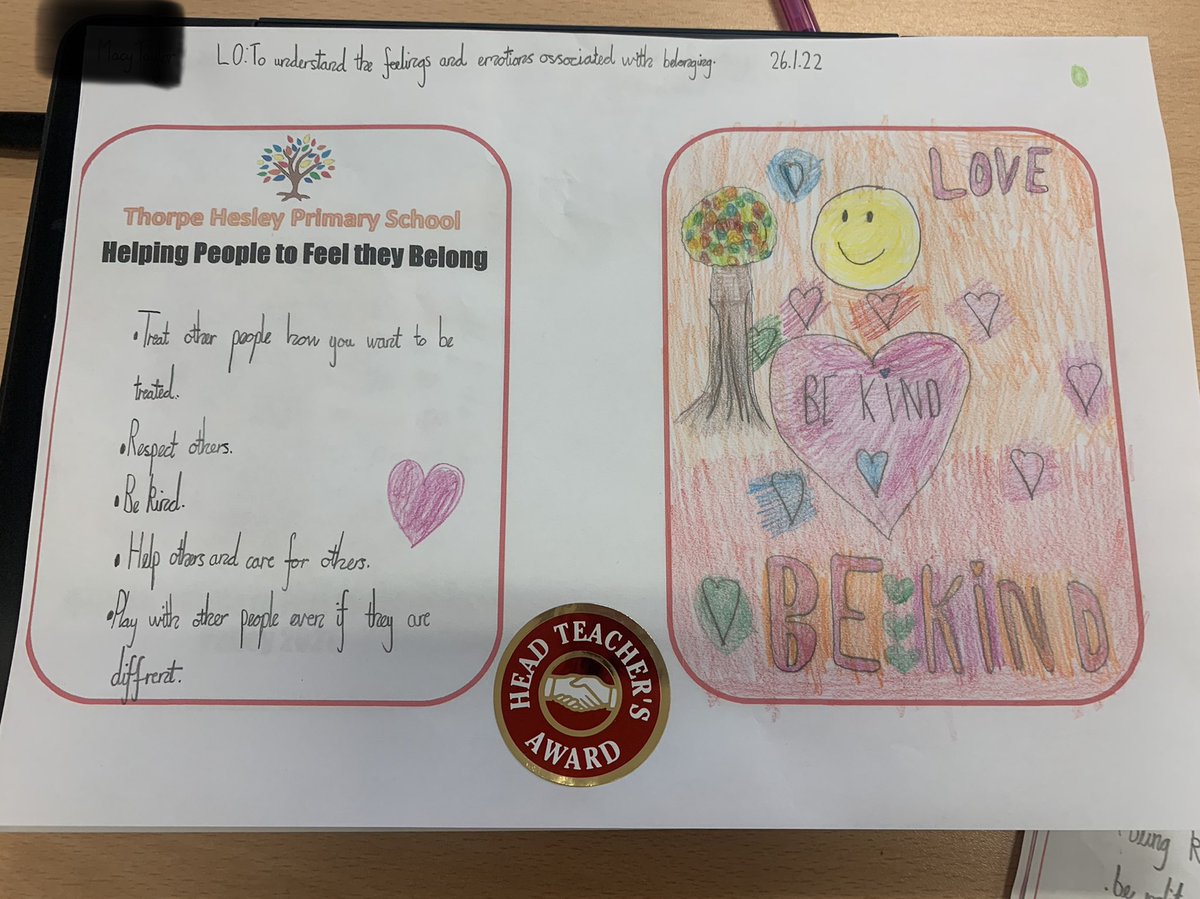 LO: To understand the feelings and emotions associated with belonging. 26.1.22
Thorpe Hesley Primary School
Helping People to Feel they Belong
• Treat other people how you want to be
treated.
• Respect others.
• Be kind.
• Help others and care for others.
• Play with other people even if they are
diffrent.
HEAD TEACHER'S
AWARD
LOVE
BE KIND
BE KIND
being
.be